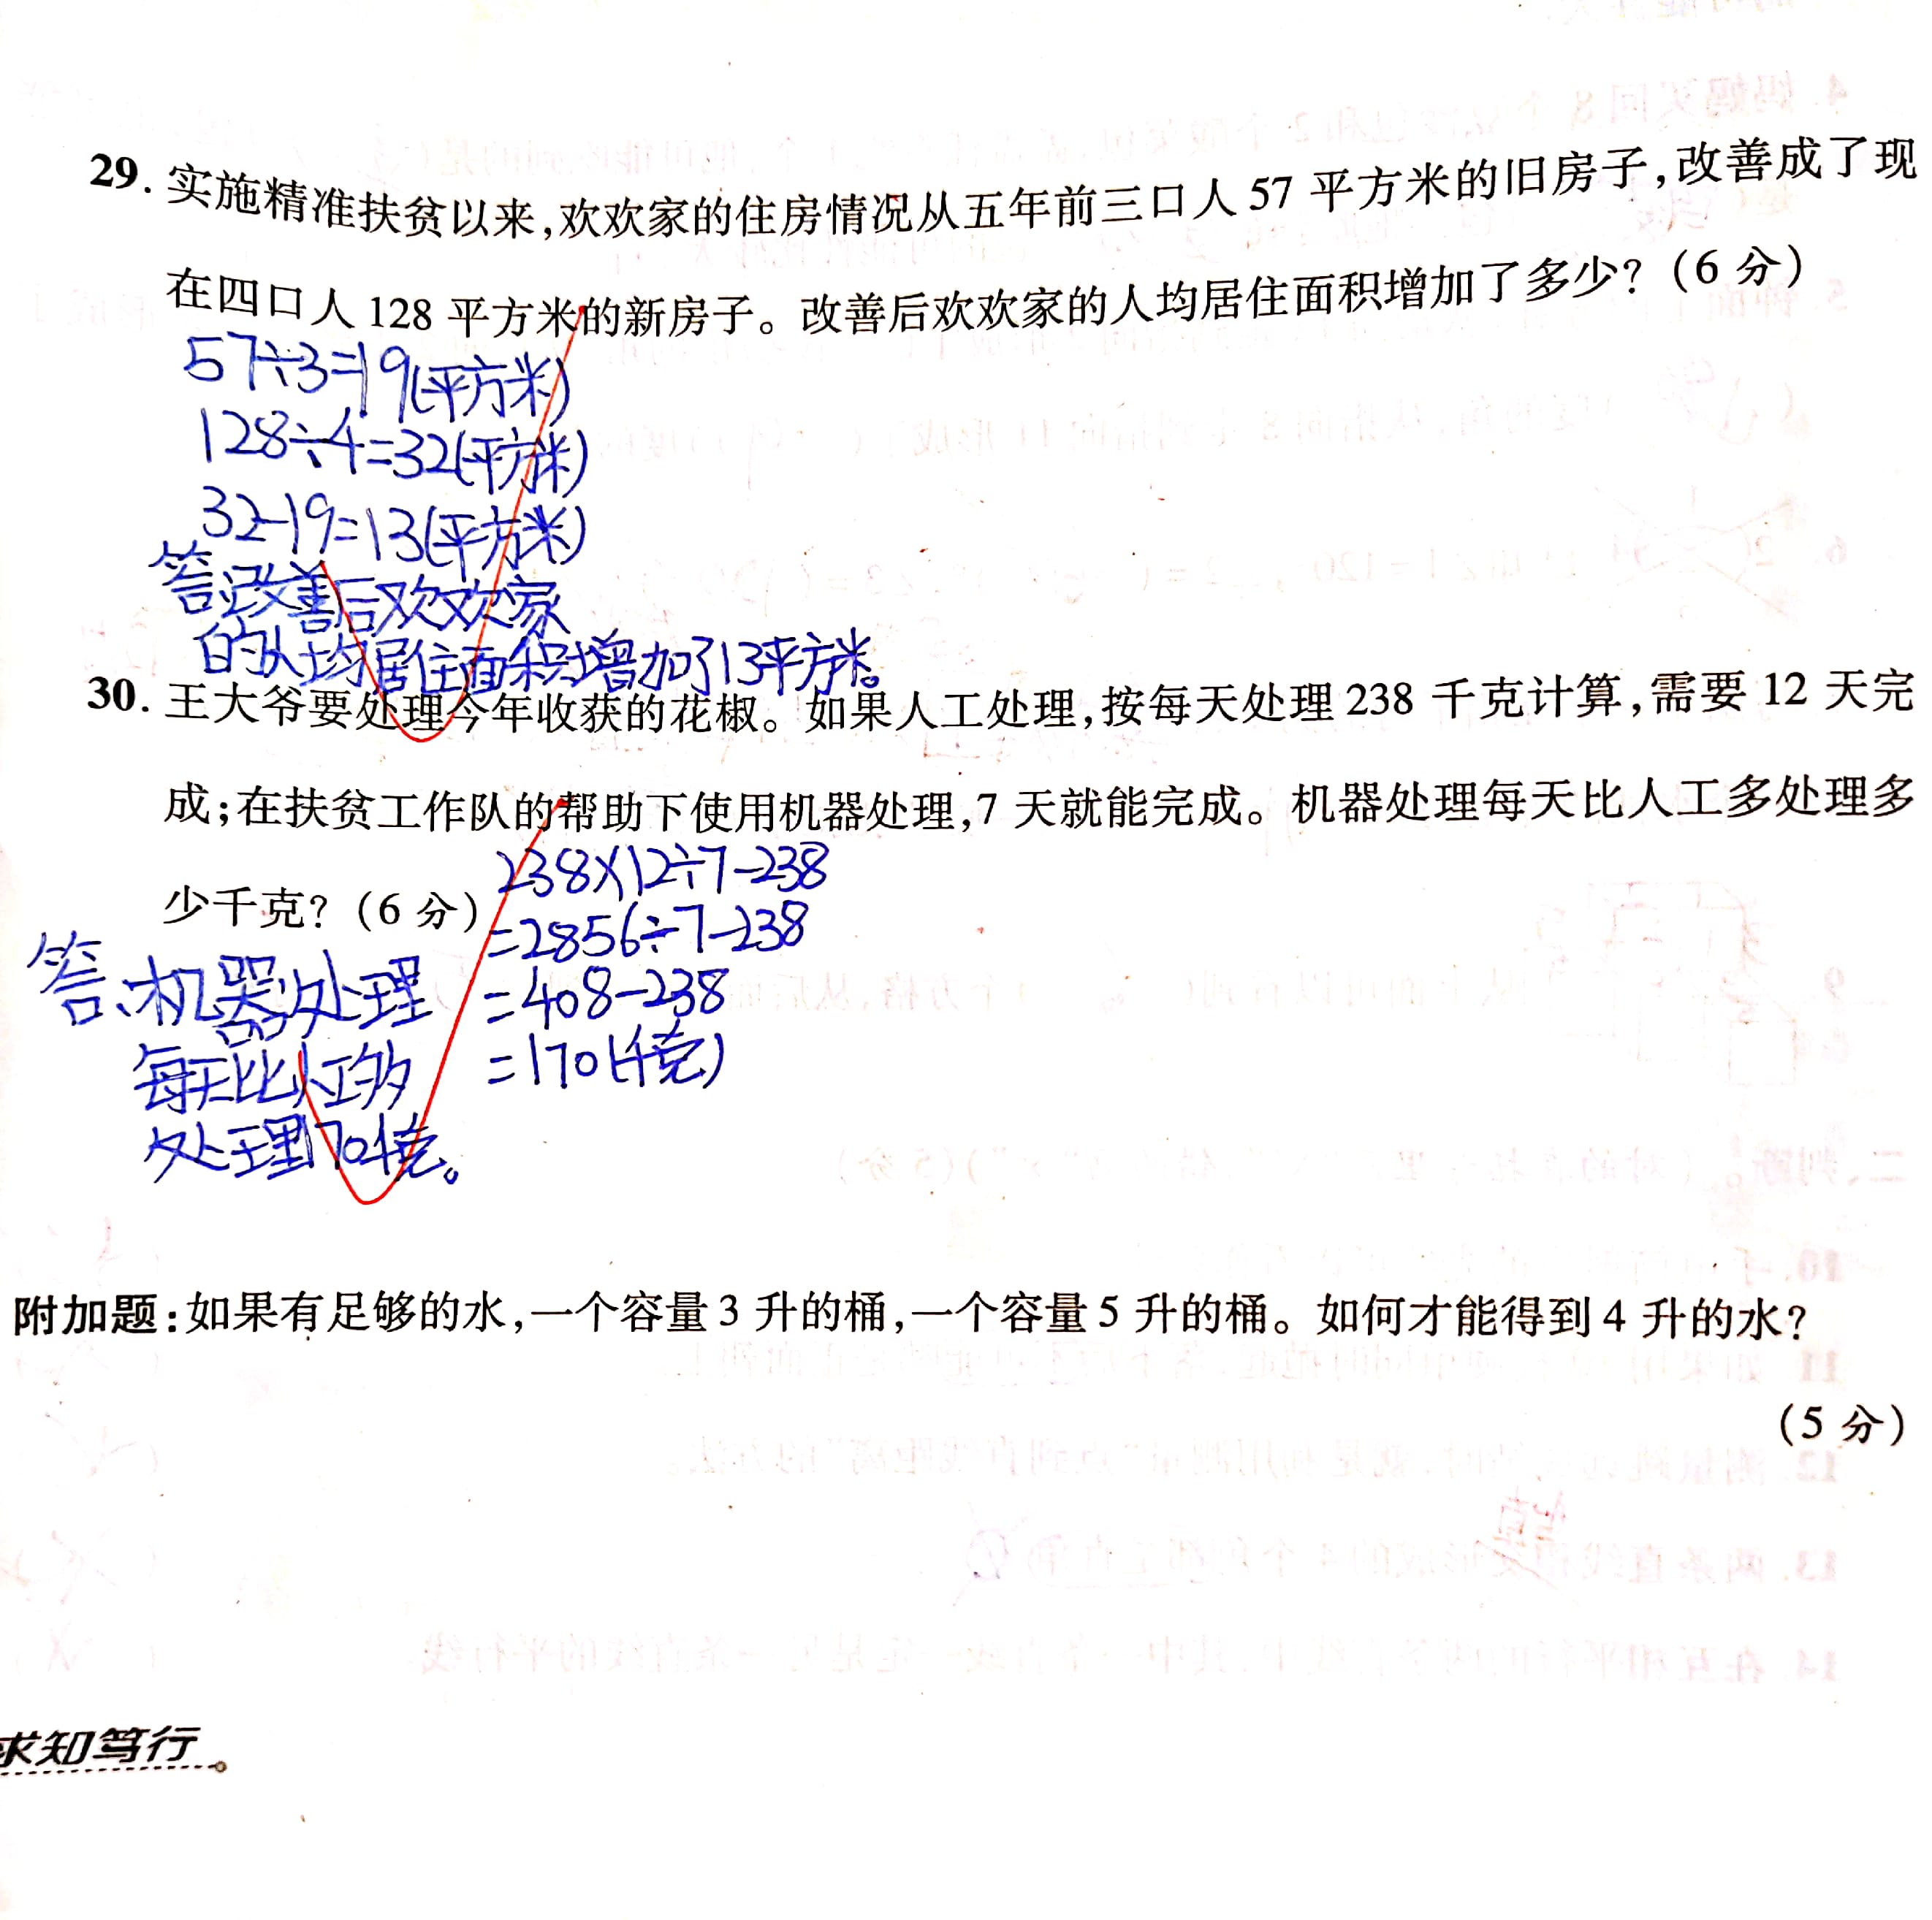 29. 实施精准扶贫以来,欢欢家的住房情况从五年前三口人 57 平方米的旧房子,改善成了现
在四口人 128 平方米的新房子。改善后欢欢家的人均居住面积增加了多少?(6 分)
57÷3=19(平方米)
128÷4=32(平方米)
32-19=13(平方米)
答:改善后欢欢家
的人均居住面积增加了13平方米。
30. 王大爷要处理今年收获的花椒。如果人工处理,按每天处理 238 千克计算,需要 12 天完
成;在扶贫工作队的帮助下使用机器处理,7 天就能完成。机器处理每天比人工多处理多
少千克?(6 分)
238×12÷7-238
=2856÷7-238
=408-238
=170(千克)
答:机器处理
每天比人工多
处理170千克。
附加题:如果有足够的水,一个容量 3 升的桶,一个容量 5 升的桶。如何才能得到 4 升的水?
(5 分)
求知笃行